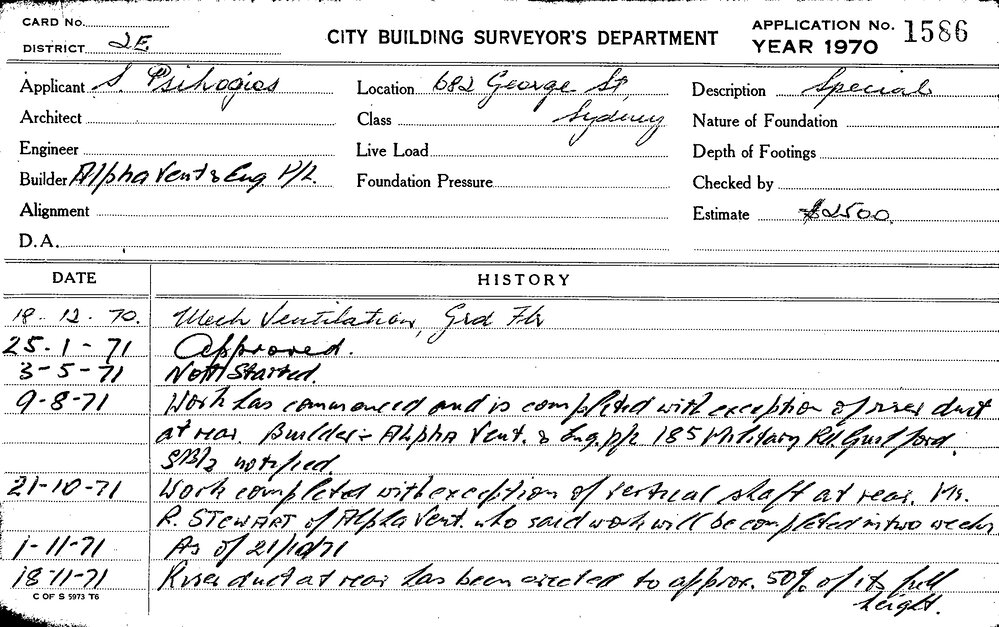 CARD No.
DISTRICT 2E
CITY BUILDING SURVEYOR'S DEPARTMENT
APPLICATION No. 1586
YEAR 1970
Applicant S. Psihogios
Location 682 George St,
Description Special
Architect
Class Sydney
Nature of Foundation
Engineer
Live Load
Depth of Footings
Builder Alpha Vent & Eng P/L.
Foundation Pressure
Checked by
Alignment
Estimate $2500.
D.A.
DATE HISTORY
18-12-70. Mech Ventilation, Grd Flr
25-1-71 Approved.
3-5-71 Not Started.
9-8-71 Work has commenced and is completed with exception of riser duct
at rear. Builder:- Alpha Vent. & Eng. P/L 185 Military Rd. Guildford.
notified.
21-10-71 Work completed with exception of vertical shaft at rear. Mr.
R. STEWART of Alpha Vent. who said work will be completed in two weeks
1-11-71 As of 21/10/71
18-11-71 Riser duct at rear has been erected to approx. 50% of its full
height.
C OF S 5973 T6